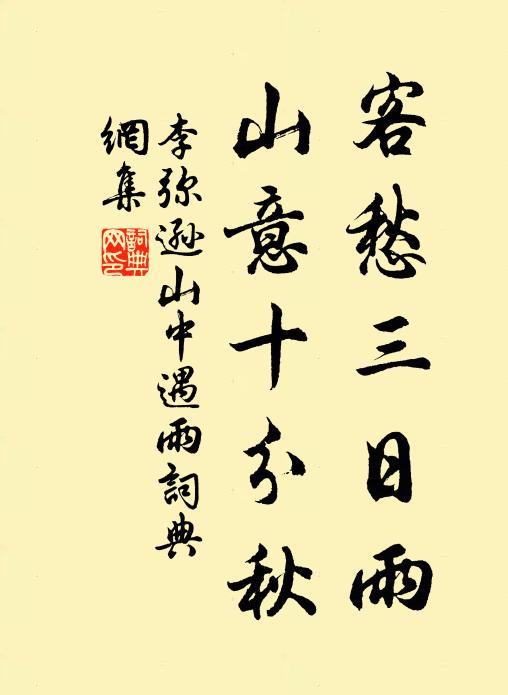 客愁三日雨
山意十分秋
李弥逊山中遇雨詞典
網集
詞典
网印